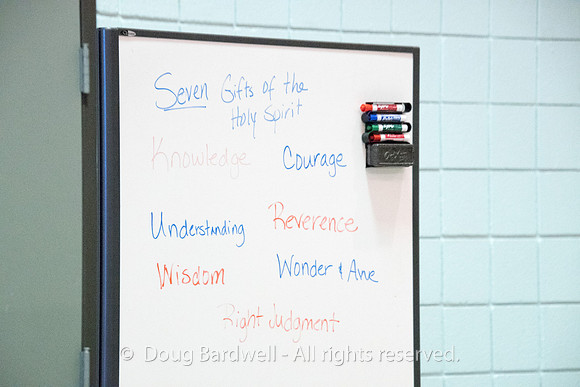 Seven Gifts of the
Holy Spirit
Knowledge Courage
Understanding Reverence
Wisdom Wonder & Awe
Right Judgment
© Doug Bardwell - All rights reserved.